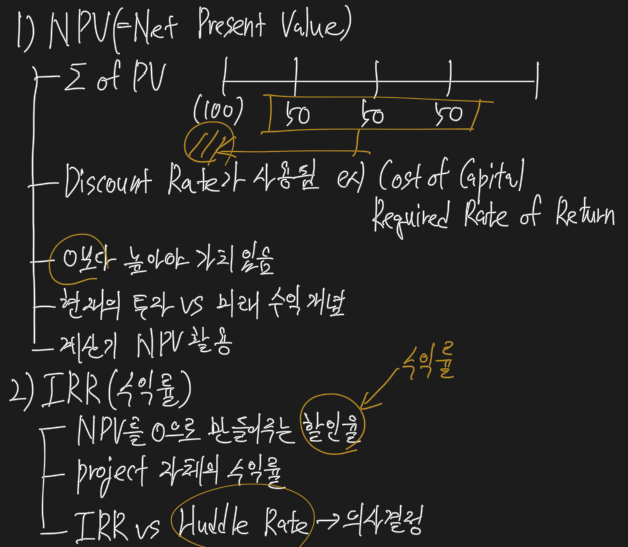 1) NPV(=Net Present Value)
Σ of PV
(100) 50 50 50
Discount Rate가 사용됨 ex) Cost of Capital
Required Rate of Return
0보다 높아야 가치 있음
현재의 투자 vs 미래 수익 개념
계산기 NPV 활용
수익률
2) IRR (수익률)
NPV를 0으로 만들어주는 할인율
project 자체의 수익률
IRR vs Huddle Rate → 의사결정